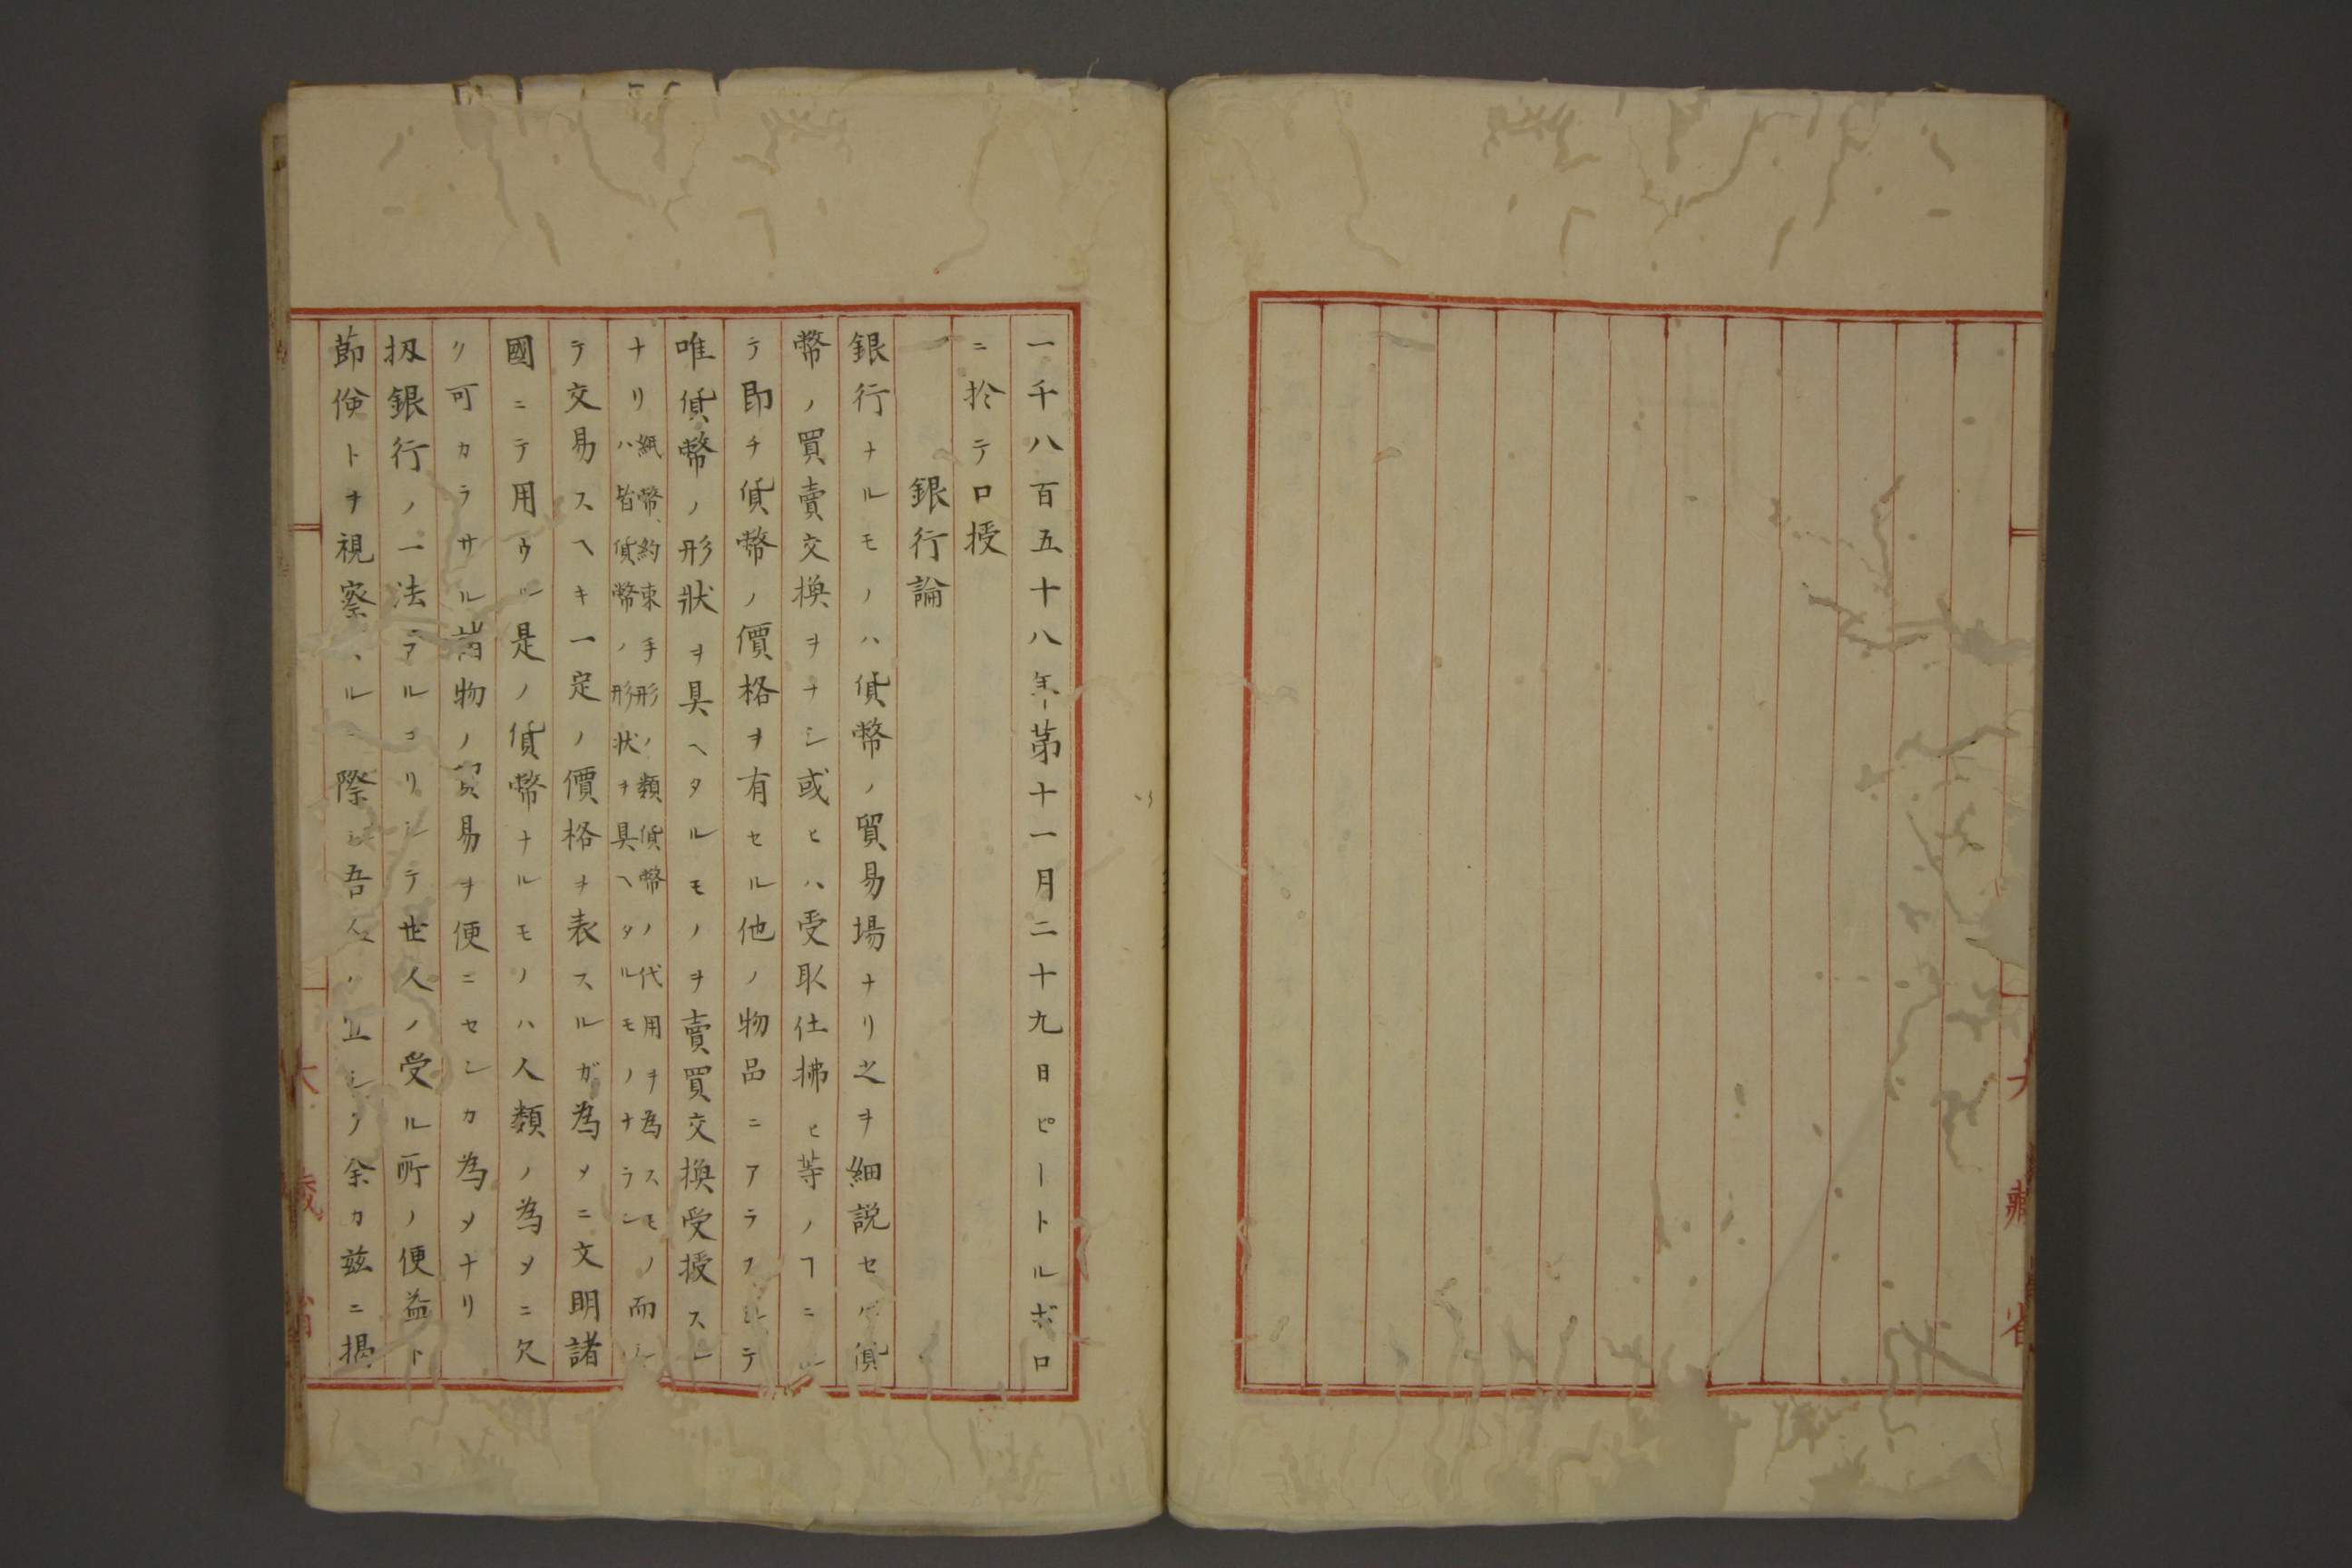 一千八百五十八年第十一月二十九日ピートルボロ
ニ於テ口授
一　銀行論
銀行ナルモノハ貨幣ノ貿易場ナリ之ヲ細説セバ貨
幣ノ買賣交換ヲナシ或ヒハ受取仕拂ヒ等ノヿニ
テ即チ貨幣ノ價格ヲ有セル他ノ物品ニアラスシテ
唯貨幣ノ形狀ヲ具ヘタルモノヲ賣買交換受授スル
ナリ紙幣約束手形ノ類貨幣ノ代用ヲ為スモノ
ハ皆貨幣ノ形状ヲ具ヘタルモノナラン而シ
テ交易スヘキ一定ノ價格ヲ表スルガ為メニ文明諸
國ニテ用ウル是ノ貨幣ナルモノハ人類ノ為メニ欠
ク可カラサル諸物ノ貿易ヲ便ニセンカ為メナリ
扨銀行ノ一法アルヨリシテ世人ノ受ル所ノ便益ト
節儉トヲ視察スルニ際シ吾人ノ宜シク余カ茲ニ揭
大藏省
大藏省